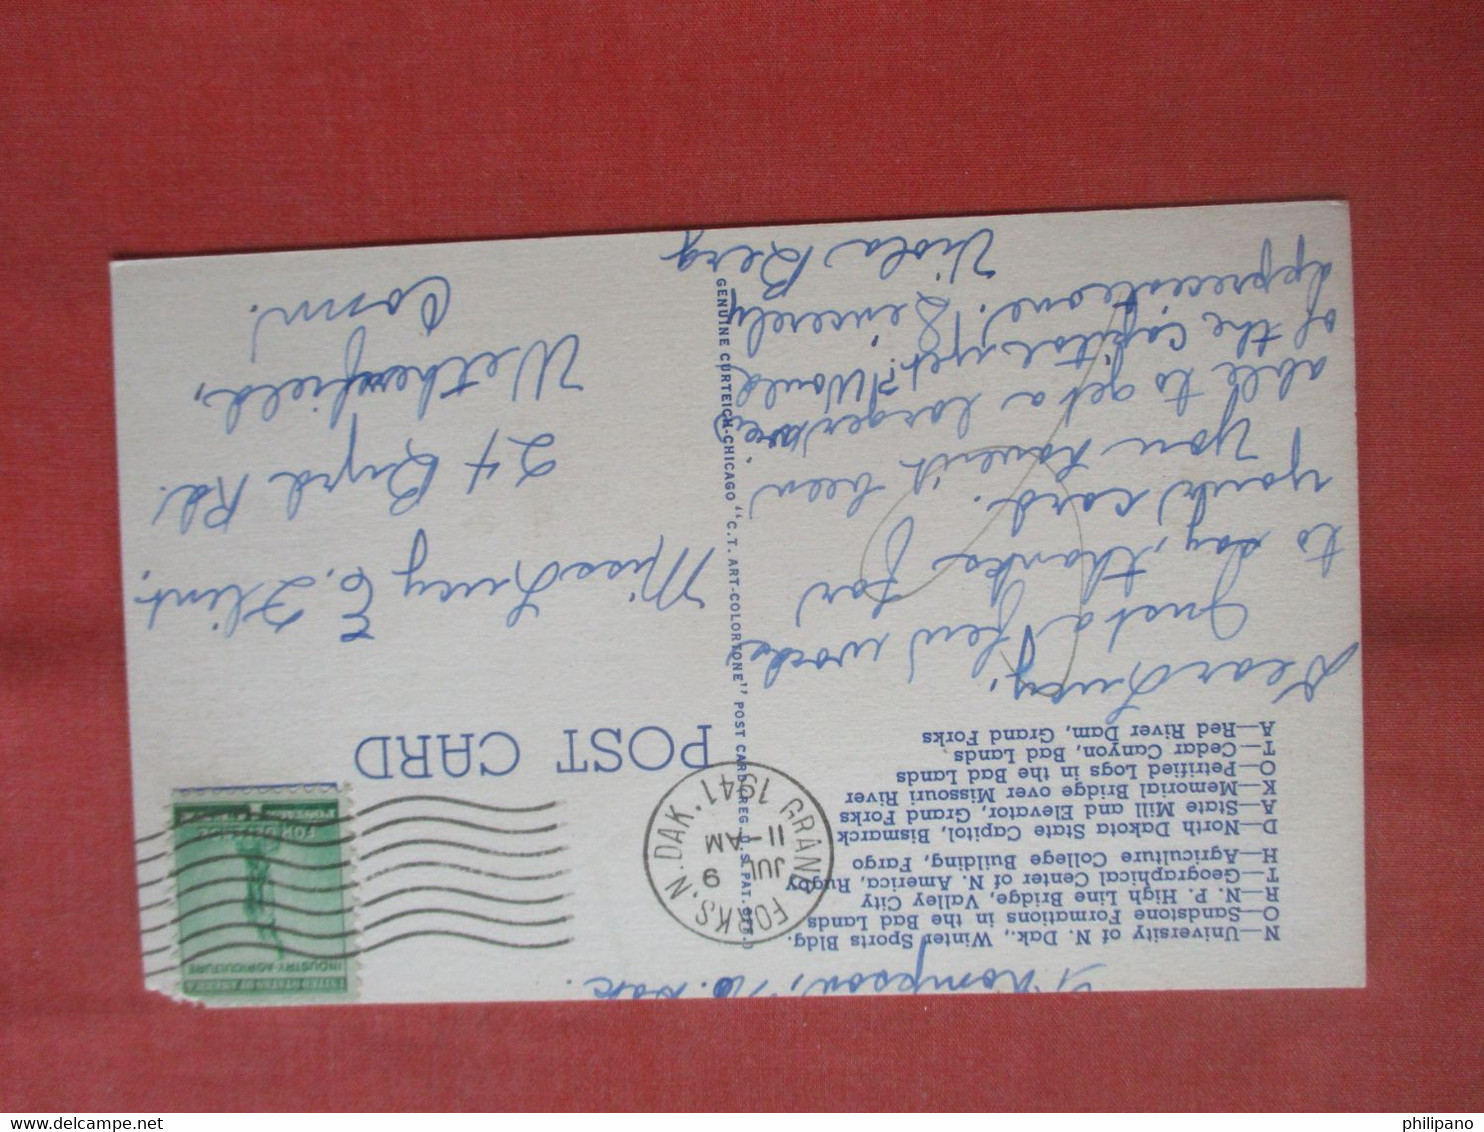 Thompson, No. Dak.
N—University of N. Dak., Winter Sports Bldg.
O—Sandstone Formations in the Bad Lands
R—N. P. High Line Bridge, Valley City
T—Geographical Center of N. America, Rugby
H—Agriculture College Building, Fargo
D—North Dakota State Capitol, Bismarck
A—State Mill and Elevator, Grand Forks
K—Memorial Bridge over Missouri River
O—Petrified Logs in the Bad Lands
T—Cedar Canyon, Bad Lands
A—Red River Dam, Grand Forks
Dear Lucy,
Just a few words
to day, thanks for
your card.
You haven't been
able to get a larger view
of the capitol yet? Would
appreciate one. Sincerely
Viola Berg
GENUINE CURTEICH-CHICAGO "C.T. ART-COLORTONE" POST CARD (REG. U.S. PAT. OFF.)
GRAND FORKS, N. DAK.
JUL 9
11-AM
1941
UNITED STATES OF AMERICA
INDUSTRY AGRICULTURE
FOR DEFENSE
POST CARD
Miss Lucy E. Flint,
24 Byrd Rd.
Wethersfield,
Conn.
philipano